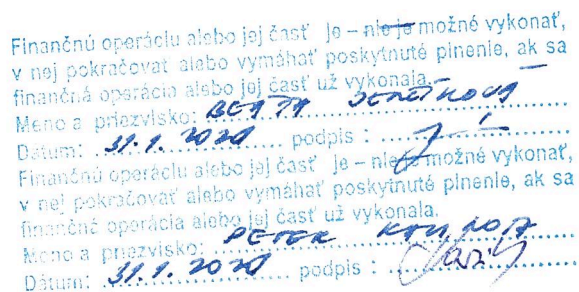 Finančnú operáciu alebo jej časť je – nie je možné vykonať,
v nej pokračovať alebo vymáhať poskytnuté plnenie, ak sa
finančná operácia alebo jej časť už vykonala.
Meno a priezvisko: BEATA
Dátum: 31.1.2020 podpis :
Finančnú operáciu alebo jej časť je – nie je možné vykonať,
v nej pokračovať alebo vymáhať poskytnuté plnenie, ak sa
finančná operácia alebo jej časť už vykonala.
Meno a priezvisko: PETER
Dátum: 31.1.2020 podpis :